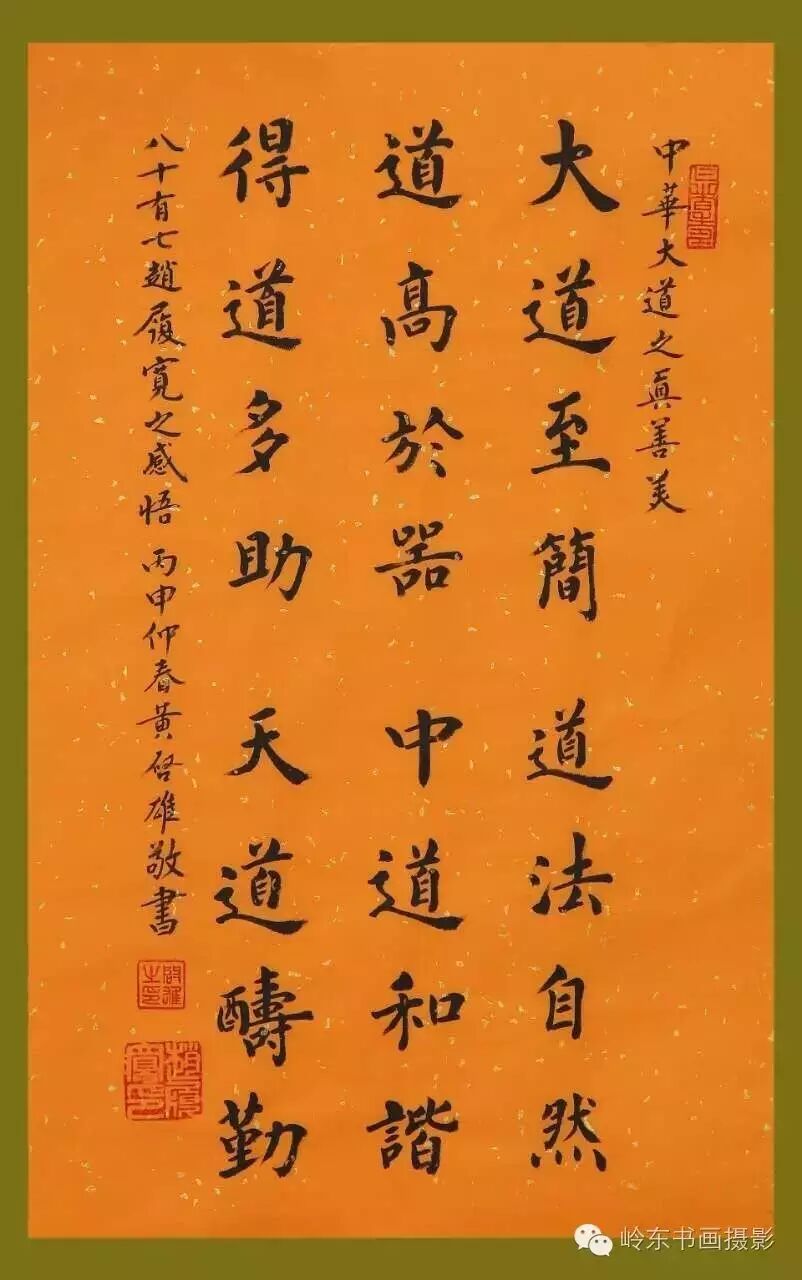 中華大道之真善美
大道至簡 道法自然
道高於器 中道和諧
得道多助 天道酬勤
八十有七趙履寬之感悟 丙申仲春黄啓雄敬書
啟雄之印
趙履寬印
岭东书画摄影